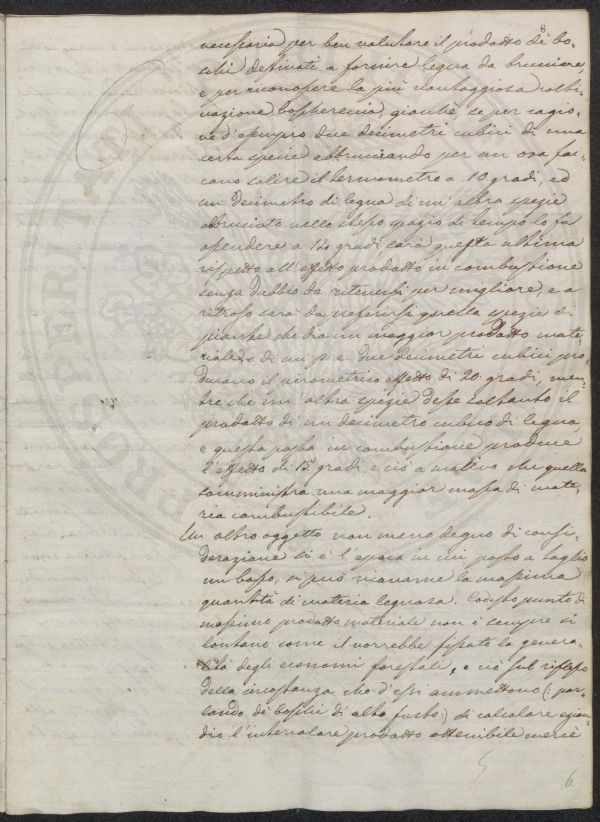 6
necessaria per ben valutare il prodotto de' bo-
schi destinati a fornire legna da bruciare,
e per riconoscere la più vantaggiosa colti-
vazione boschereccia, giacchè, se per cagio-
ne d'esempio due decimetri cubici di una
certa specie abbruciando per un ora fac-
ciano salire il termometro a 10 gradi, ed
un decimetro di legna di un' altra spezie
abbruciato nello stesso spazio di tempo lo fa
ascendere a 14 gradi sarà questa ultima
rispetto all' effetto prodotto in combustione
senza dubbio da ritenersi per migliore, e a
ritroso sarà da preferirsi quella spezie di
piante che dia un maggior prodotto mate-
riale, di cui p. e. due decimetri cubici pro-
ducano il pirometrico effetto di 20 gradi, men-
tre che un' altra spezie desse soltanto il
prodotto di un decimetro cubico di legna
e questa posta in combustione produce
l'effetto di 15 gradi e ciò a motivo che quella
somministra una maggior massa di mate-
ria combustibile.
Un altro oggetto non meno degno di consi-
derazione si è l'epoca in cui posto a taglio
un bosco, si può ricavarne la massima
quantità di materia legnosa. Codesto punto di
massimo prodotto materiale non è sempre sì
lontano come il vorrebbe fissato la genera-
lità degli economi forestali, e ciò sul riflesso
della circostanza che d'essi ammettono (: par-
lando de' boschi di alto fusto :) di calcolare ezian-
dio l'intercalare prodotto ottenibile mercè
6.